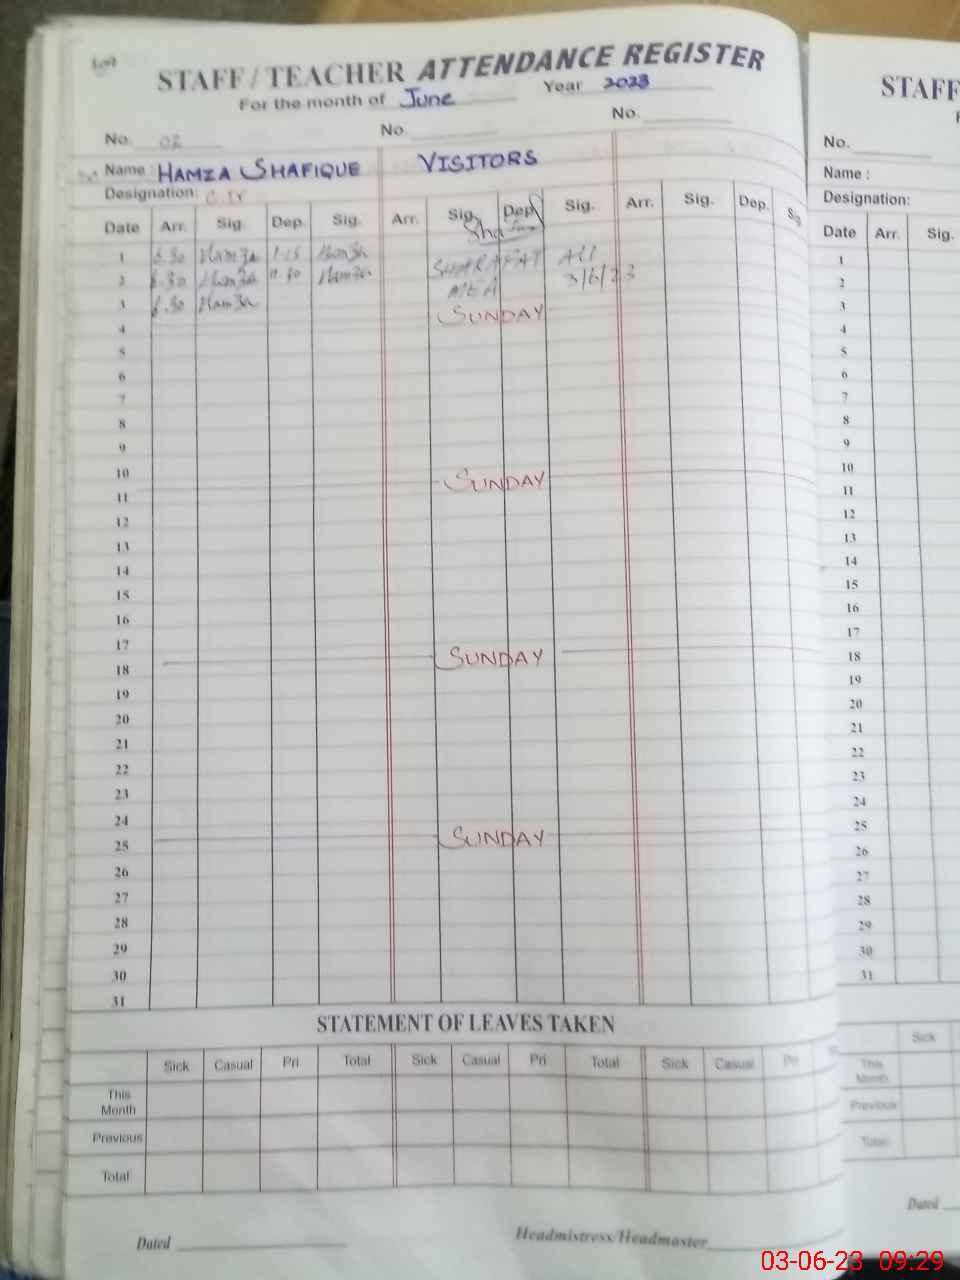 STAFF / TEACHER ATTENDANCE REGISTER
For the month of June Year 2023
No. 02 No. No.
Name HAMZA SHAFIQUE VISITORS
Designation:
Date Arr. Sig. Dep. Sig. Arr. Sig. Dep. Sig. Arr. Sig. Dep. Sig.
1 Hamza 1.15 Hamza SHARAFAT ALI
2 6.30 Hamza 11.30 Hamza MEA 3/6/23
3 6.30 Hamza SUNDAY
4
5
6
7
8
9
10 SUNDAY
11
12
13
14
15
16
17
18 SUNDAY
19
20
21
22
23
24
25 SUNDAY
26
27
28
29
30
31
STATEMENT OF LEAVES TAKEN
Sick Casual Pri Total Sick Casual Pri Total Sick Casual Pri
This Month
Previous
Total
Dated Headmistress/Headmaster
STAFF
No.
Name :
Designation:
Date Arr. Sig.
1
2
3
4
5
6
7
8
9
10
11
12
13
14
15
16
17
18
19
20
21
22
23
24
25
26
27
28
29
30
31
Sick
This Month
Previous
Total
Dated
03-06-23 09:29